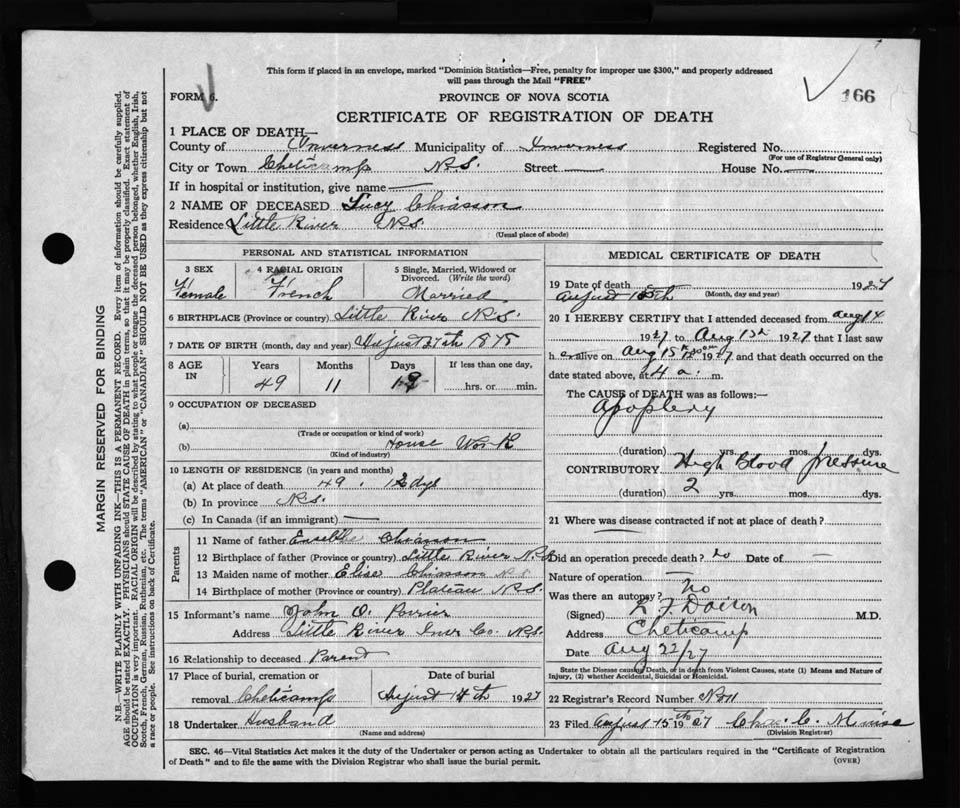 This form if placed in an envelope, marked "Dominion Statistics—Free, penalty for improper use $300," and properly addressed
will pass through the Mail "FREE"
FORM 6.
PROVINCE OF NOVA SCOTIA
166
CERTIFICATE OF REGISTRATION OF DEATH
1 PLACE OF DEATH—
County of Inverness Municipality of Inverness Registered No.
(For use of Registrar General only)
City or Town Cheticamp N.S. Street — House No. —
If in hospital or institution, give name —
2 NAME OF DECEASED Lucy Chiasson
Residence Little River N.S.
(Usual place of abode)
PERSONAL AND STATISTICAL INFORMATION
3 SEX 4 RACIAL ORIGIN 5 Single, Married, Widowed or
Divorced. (Write the word)
Female French Married
6 BIRTHPLACE (Province or country) Little River N.S.
7 DATE OF BIRTH (month, day and year) August 27th 1875
8 AGE IN Years Months Days If less than one day,
49 11 hrs. or min.
9 OCCUPATION OF DECEASED
(a)
(Trade or occupation or kind of work)
(b) House Work
(Kind of industry)
10 LENGTH OF RESIDENCE (in years and months)
(a) At place of death 49 dys
(b) In province N.S.
(c) In Canada (if an immigrant) —
Parents
11 Name of father Chiasson
12 Birthplace of father (Province or country) Little River N.S.
13 Maiden name of mother Elise Chiasson N.S
14 Birthplace of mother (Province or country) Plateau N.S.
15 Informant's name John O.
Address Little River Inver Co. N.S.
16 Relationship to deceased Parent
17 Place of burial, cremation or Date of burial
removal Cheticamp August 1927
18 Undertaker Husband
(Name and address)
MEDICAL CERTIFICATE OF DEATH
19 Date of death 1927
August 15th (Month, day and year)
20 I HEREBY CERTIFY that I attended deceased from Aug 14
1927 to Aug 15th 1927 that I last saw
h er alive on Aug 15th 1927 and that death occurred on the
date stated above, at 4 a. m.
The CAUSE of DEATH was as follows:—
Apoplexy
(duration) yrs. mos. dys.
CONTRIBUTORY High Blood pressure
(duration) 2 yrs. mos. dys.
21 Where was disease contracted if not at place of death?
—
Did an operation precede death? no Date of —
Nature of operation —
Was there an autopsy? No
(Signed) M.D.
Address Cheticamp
Date Aug 22/27
State the Disease causing Death, or in death from Violent Causes, state (1) Means and Nature of
Injury, (2) whether Accidental, Suicidal or Homicidal.
22 Registrar's Record Number
23 Filed August 15th 27 Chas. C.
(Division Registrar)
SEC. 46—Vital Statistics Act makes it the duty of the Undertaker or person acting as Undertaker to obtain all the particulars required in the "Certificate of Registration
of Death" and to file the same with the Division Registrar who shall issue the burial permit. (OVER)
MARGIN RESERVED FOR BINDING
N.B.—WRITE PLAINLY WITH UNFADING INK—THIS IS A PERMANENT RECORD. Every item of information should be carefully supplied.
AGE should be stated EXACTLY. PHYSICIANS should STATE CAUSE OF DEATH in plain terms, so that it may be properly classified. Exact statement of
OCCUPATION is very important. RACIAL ORIGIN will be described by stating to what people or tongue the deceased person belonged, whether English, Irish,
Scotch, French, German, Russian, Ruthenian, etc. The terms "AMERICAN" or "CANADIAN" SHOULD NOT BE USED as they express citizenship but not
a race or people. See instructions on back of Certificate.